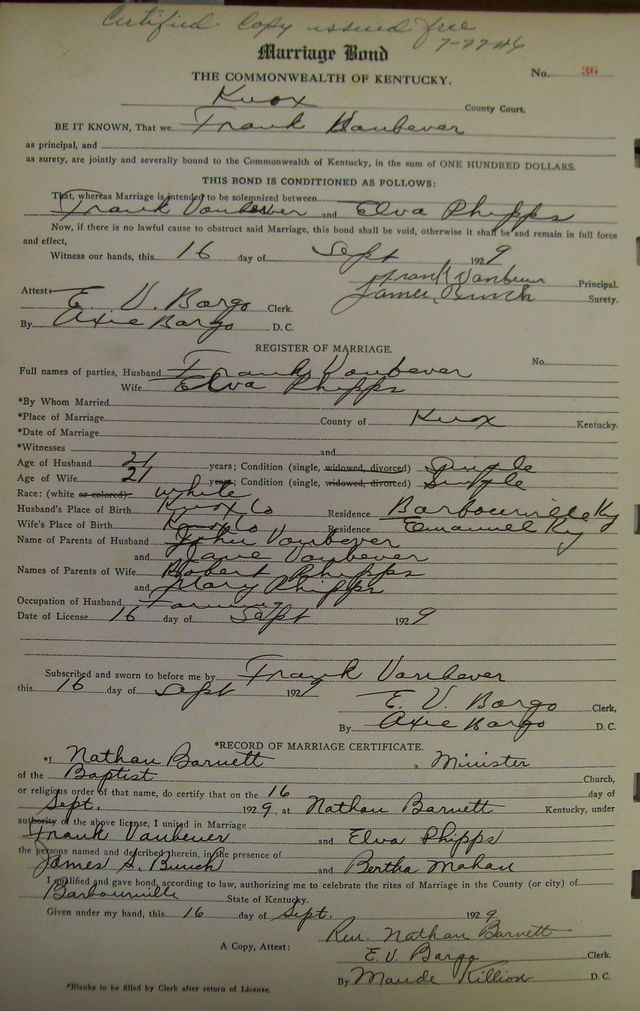 Certified Copy issued free
7-27-46
Marriage Bond
THE COMMONWEALTH OF KENTUCKY.
No. 36
Knox County Court.
BE IT KNOWN, That we Frank Vanbever
as principal, and
as surety, are jointly and severally bound to the Commonwealth of Kentucky, in the sum of ONE HUNDRED DOLLARS.
THIS BOND IS CONDITIONED AS FOLLOWS:
That, whereas Marriage is intended to be solemnized between
Frank Vanbever and Elva Phipps
Now, if there is no lawful cause to obstruct said Marriage, this bond shall be void, otherwise it shall be and remain in full force
and effect,
Witness our hands, this 16 day of Sept 1929
Frank Vanbever Principal.
Attest: James Bunch Surety.
E. V. Bargo Clerk.
By Axie Bargo D. C.
REGISTER OF MARRIAGE.
No.
Full names of parties, Husband Frank Vanbever
Wife Elva Phipps
*By Whom Married
*Place of Marriage County of Knox Kentucky.
*Date of Marriage
*Witnesses and
Age of Husband 21 years; Condition (single, widowed, divorced) Single
Age of Wife 21 years; Condition (single, widowed, divorced) Single
Race: (white or colored) white
Husband's Place of Birth Knox Co Residence Barbourville Ky
Wife's Place of Birth Knox Co Residence Emanuel Ky
Name of Parents of Husband John Vanbever
and Jane Vanbever
Names of Parents of Wife Robert Phipps
and Mary Phipps
Occupation of Husband Farming
Date of License 16 day of Sept 1929
Subscribed and sworn to before me by Frank Vanbever
this 16 day of Sept 1929
E. V. Bargo Clerk,
By Axie Bargo D. C.
*RECORD OF MARRIAGE CERTIFICATE.
*I Nathan Barnett a Minister
of the Baptist Church,
or religious order of that name, do certify that on the 16 day of
Sept. 1929, at Nathan Barnett Kentucky, under
authority of the above license, I united in Marriage
Frank Vanbever and Elva Phipps
the persons named and described therein, in the presence of
James S. Bunch and Bertha Mahan
I qualified and gave bond, according to law, authorizing me to celebrate the rites of Marriage in the County (or city) of
Barbourville State of Kentucky.
Given under my hand, this 16 day of Sept. 1929.
Rev. Nathan Barnett
A Copy, Attest: E. V. Bargo Clerk.
By Maude Killion D. C.
*Blanks to be filled by Clerk after return of License.